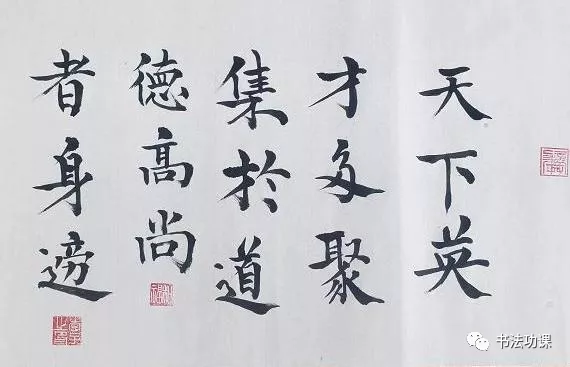 天下英
才多聚
集於道
德高尚
者身邊
书法功课